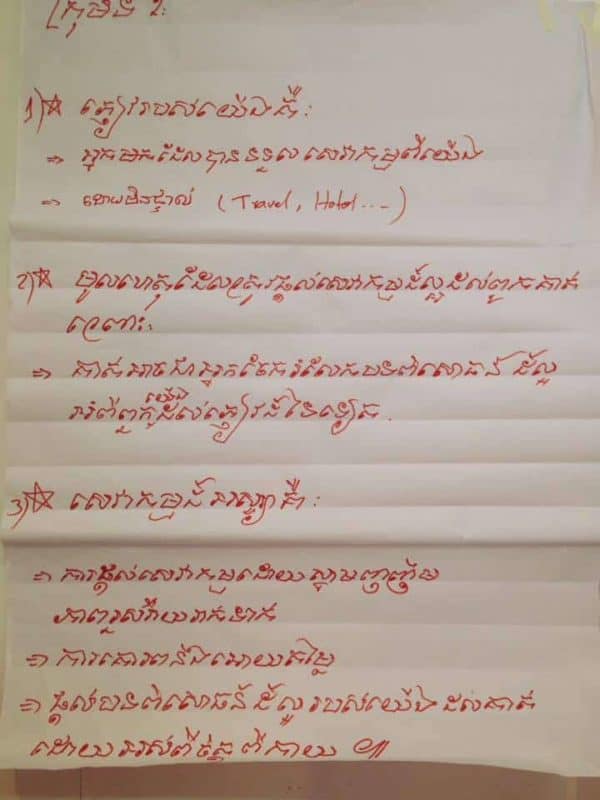 ក្រុមទី 2:
1)☆ ភ្ញៀវរបស់យើងគឺ:
⇒ អ្នកមកដែលបានទទួលសេវាកម្មពីយើង
⇒ ដោយមិនផ្ទាល់ (Travel, Hotel...)
2)☆ មូលហេតុដែលត្រូវផ្តល់សេវាកម្មដ៏ល្អដល់ពួកគាត់
ព្រោះ:
⇒ គាត់អាចជាអ្នកចែករំលែកបទពិសោធន៍ ដ៏ល្អ
អំពីពួកយើងដល់ភ្ញៀវដទៃទៀត.
3)☆ សេវាកម្មដ៏អស្ចារ្យគឺ:
⇒ ការផ្តល់សេវាកម្មដោយស្នាមញញឹម
ភាពរួសរាយរាក់ទាក់
⇒ ការគោរពនិងអោយតម្លៃ
⇒ ផ្តល់បទពិសោធន៍ដ៏ល្អ របស់យើងដល់គាត់
ដោយអស់ពីចិត្តពីកាយ ៕